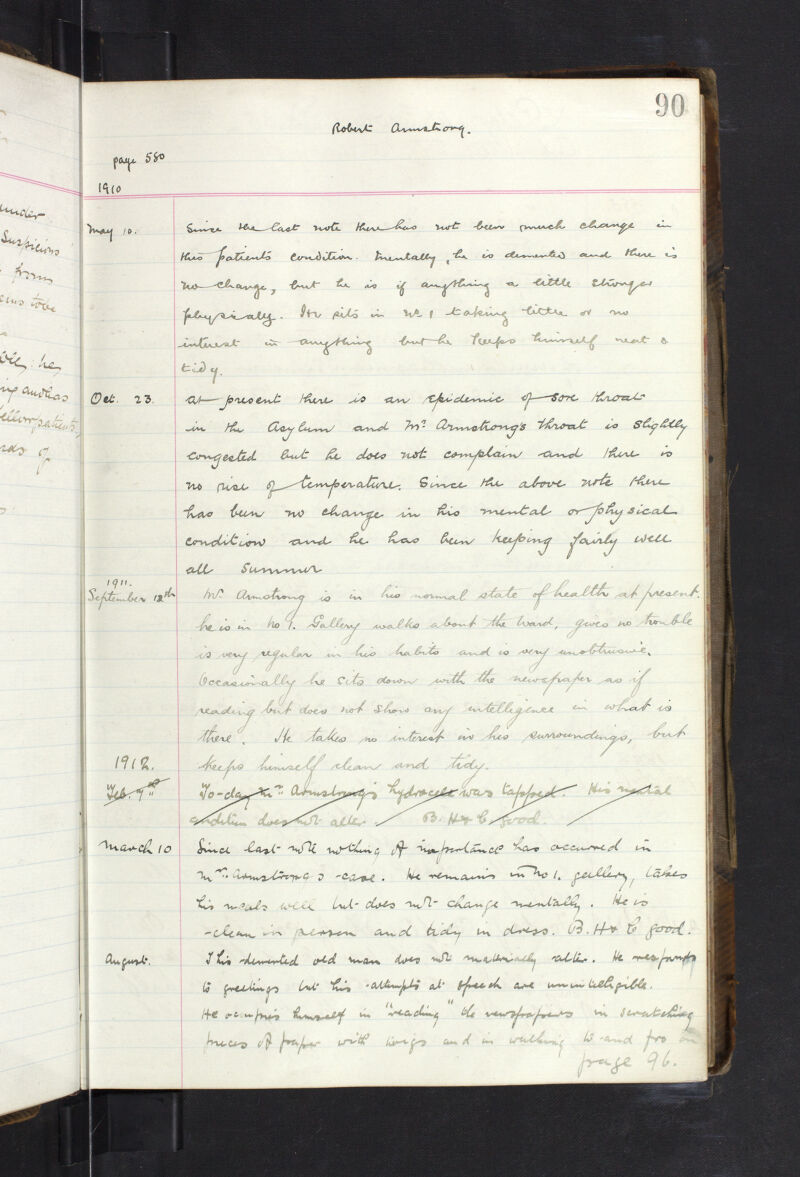 90
Robert Armstrong.
page 580
1910
May 10. Since the last note there has not been much change in
this patients condition. Mentally, he is demented and there is
no change, but he is if anything a little stronger
physically. He sits in No 1 taking little or no
interest in anything but he keeps himself neat &
tidy.
Oct. 23. At present there is an epidemic of sore throat
in the Asylum and Mr. Armstrong's throat is slightly
congested but he does not complain and there is
no rise of temperature. Since the above note there
has been no change in his mental or physical
condition and he has been keeping fairly well
all summer
1911.
September 12th Mr Armstrong is in his normal state of health at present.
he is in No 1. Gallery walks about the ward, gives no trouble
is very regular in his habits and is very unobtrusive.
Occasionally he sits down with the newspaper as if
reading but does not show any intelligence in what is
there. He takes no interest in his surroundings, but
1912. keeps himself clean and tidy.
Feb. 9th To-day Mr. Armstrong's hydrocele was tapped. His mental
condition does not alter. B. H & C good.
March 10 Since last note nothing of importance has occurred in
Mr. Armstrong's case. He remains in No 1. gallery, takes
his meals well but does not change mentally. He is
clean in person and tidy in dress. B. H & C good.
August. This demented old man does not materially alter. He responds
to greetings but his attempts at speech are unintelligible.
He occupies himself in "reading" the newspapers in scratching
pieces of paper with twigs and in walking to and fro on
page 96.
under
Suspicious
from
he
and has
fellow patients,
of